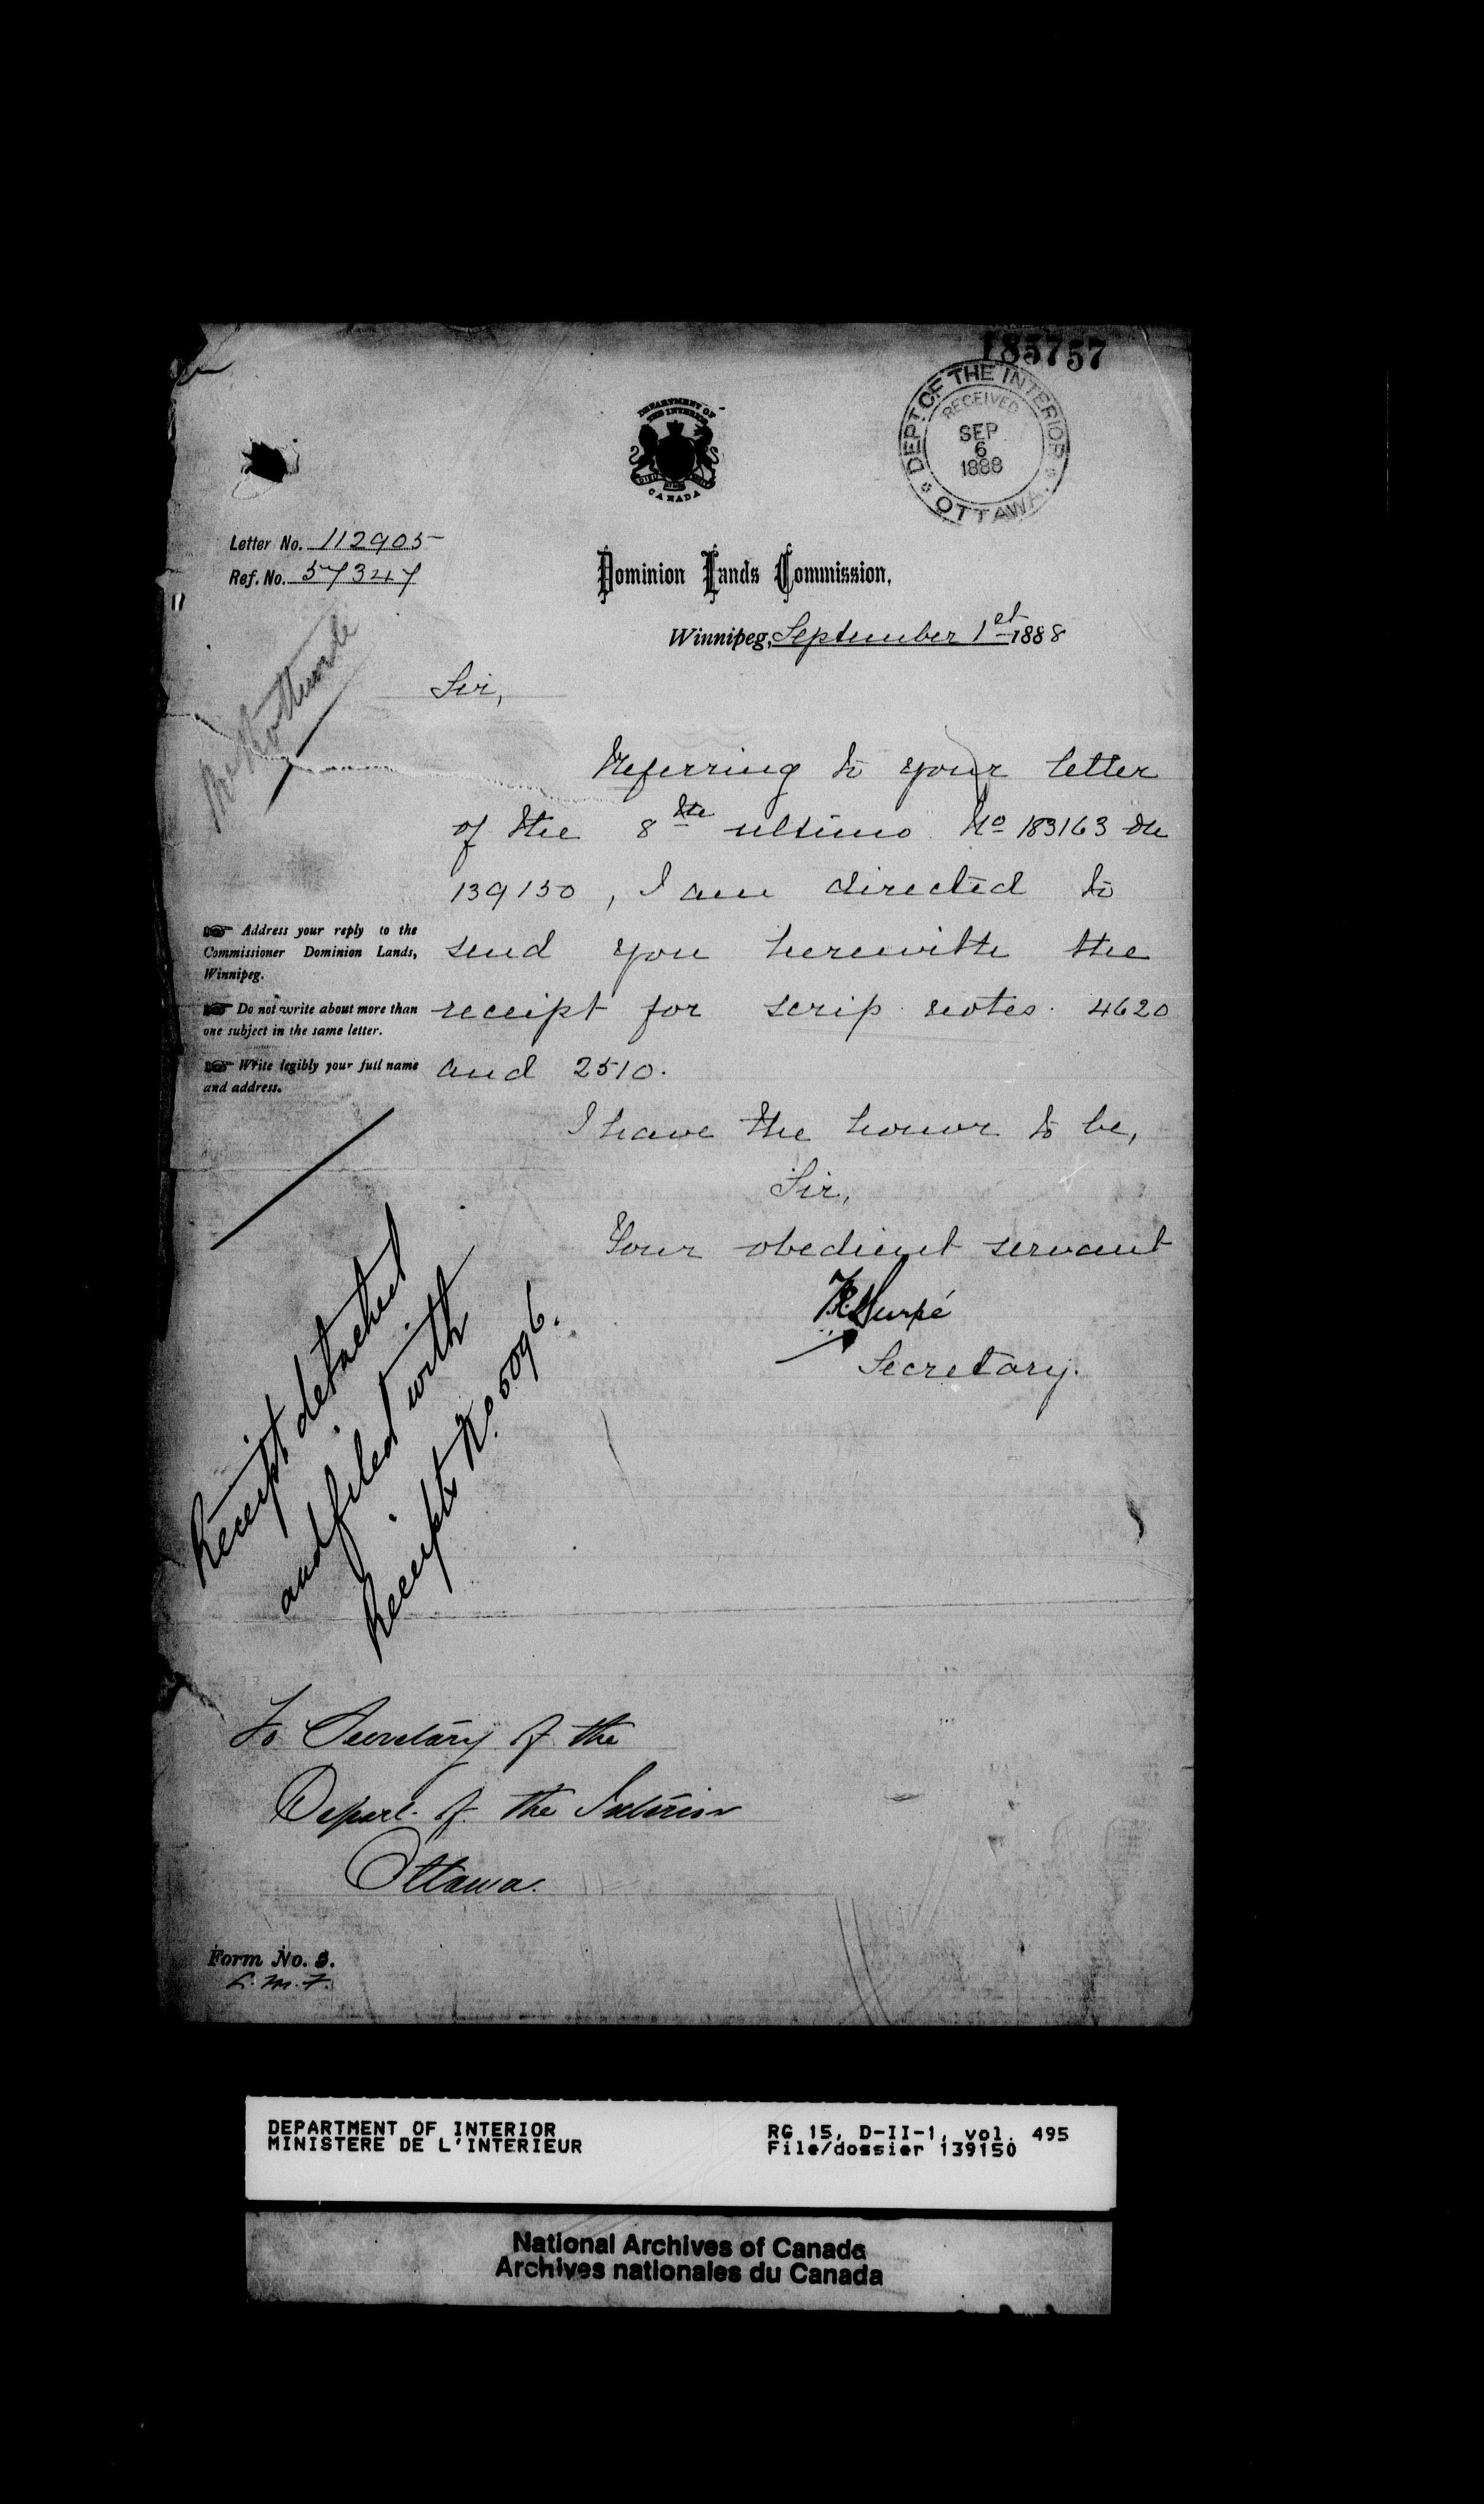 185757
DEPT. OF THE INTERIOR
RECEIVED
SEP
6
1888
OTTAWA.
DEPARTMENT OF
THE INTERIOR
CANADA
Letter No. 112905
Ref. No. 57347
Dominion Lands Commission,
Winnipeg, September 1st 1888
Sir,
Referring to your letter
of the 8th ultimo No 183163 on
139150, I am directed to
send you herewith the
receipt for scrip notes 4620
and 2510.
Address your reply to the
Commissioner Dominion Lands,
Winnipeg.
Do not write about more than
one subject in the same letter.
Write legibly your full name
and address.
I have the honor to be,
Sir,
Your obedient servant
Secretary.
Receipt detached
and filed with
Receipts No. 5096.
To Secretary of the
Depart. of the Interior
Ottawa.
Form No. 3.
DEPARTMENT OF INTERIOR
MINISTERE DE L'INTERIEUR
RG 15, D-II-1, vol. 495
File/dossier 139150
National Archives of Canada
Archives nationales du Canada